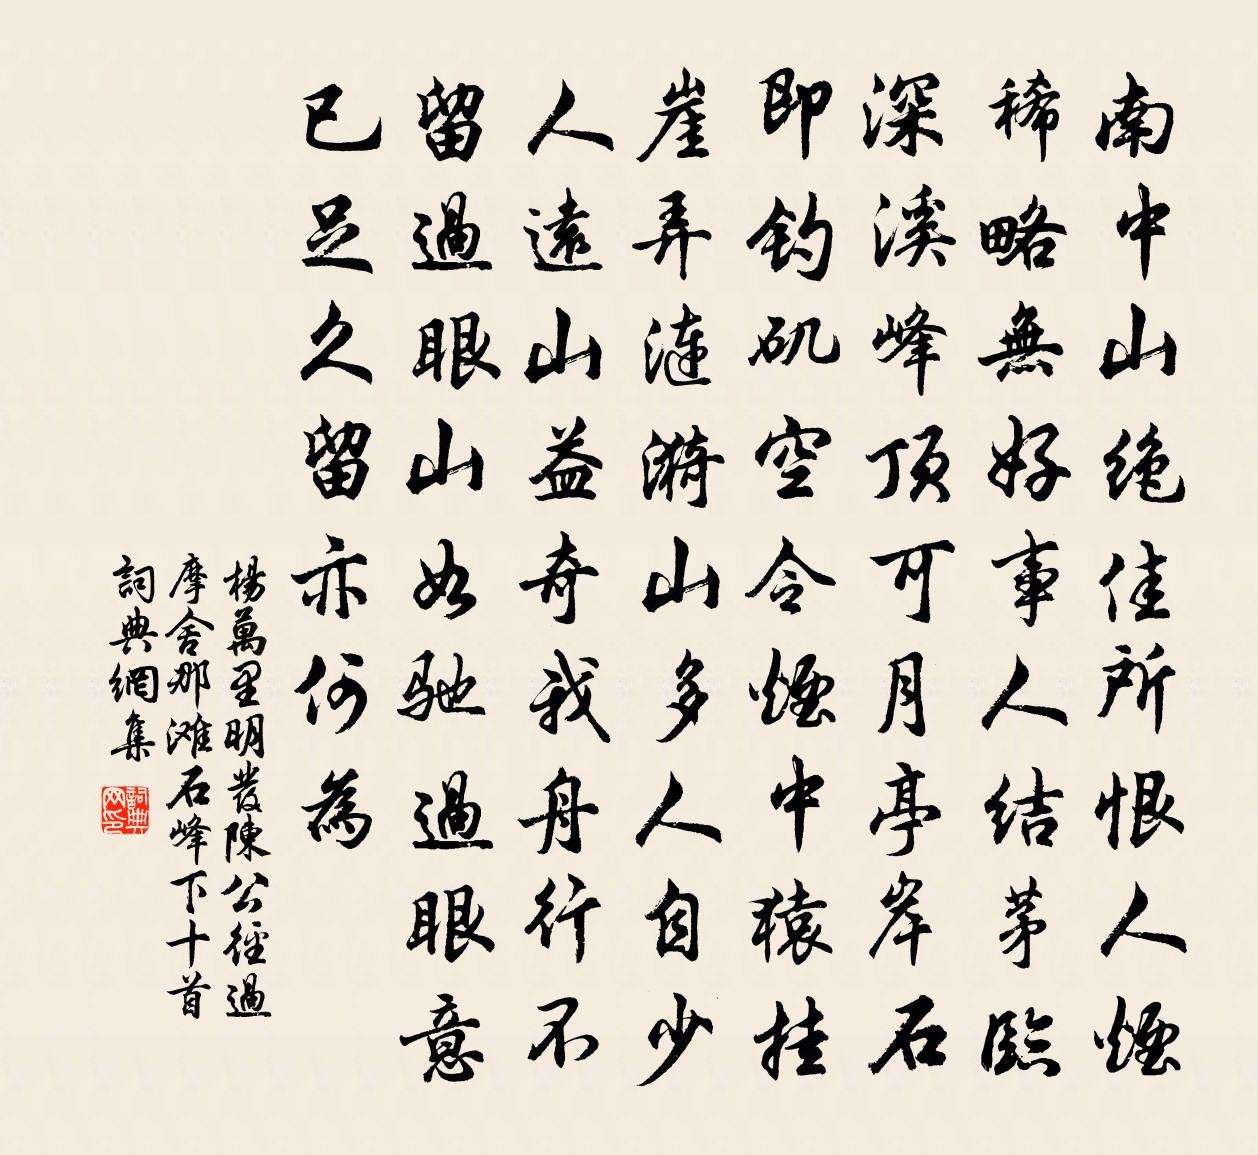 南中山绝佳所恨人煙
稀略無好事人结茅臨
深溪峰顶可月亭岸石
即钓矶空令煙中猿挂
崖弄漣漪山多人自少
人遠山益奇我舟行不
留過眼山如馳過眼意
已足久留亦何為
楊萬里明發陳公徑過
摩舍那滩石峰下十首
詞典網集
詞典网印